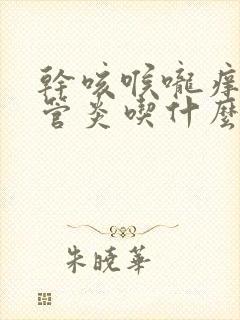 幹咳喉嚨癢
管炎喫什麼
朱曉華